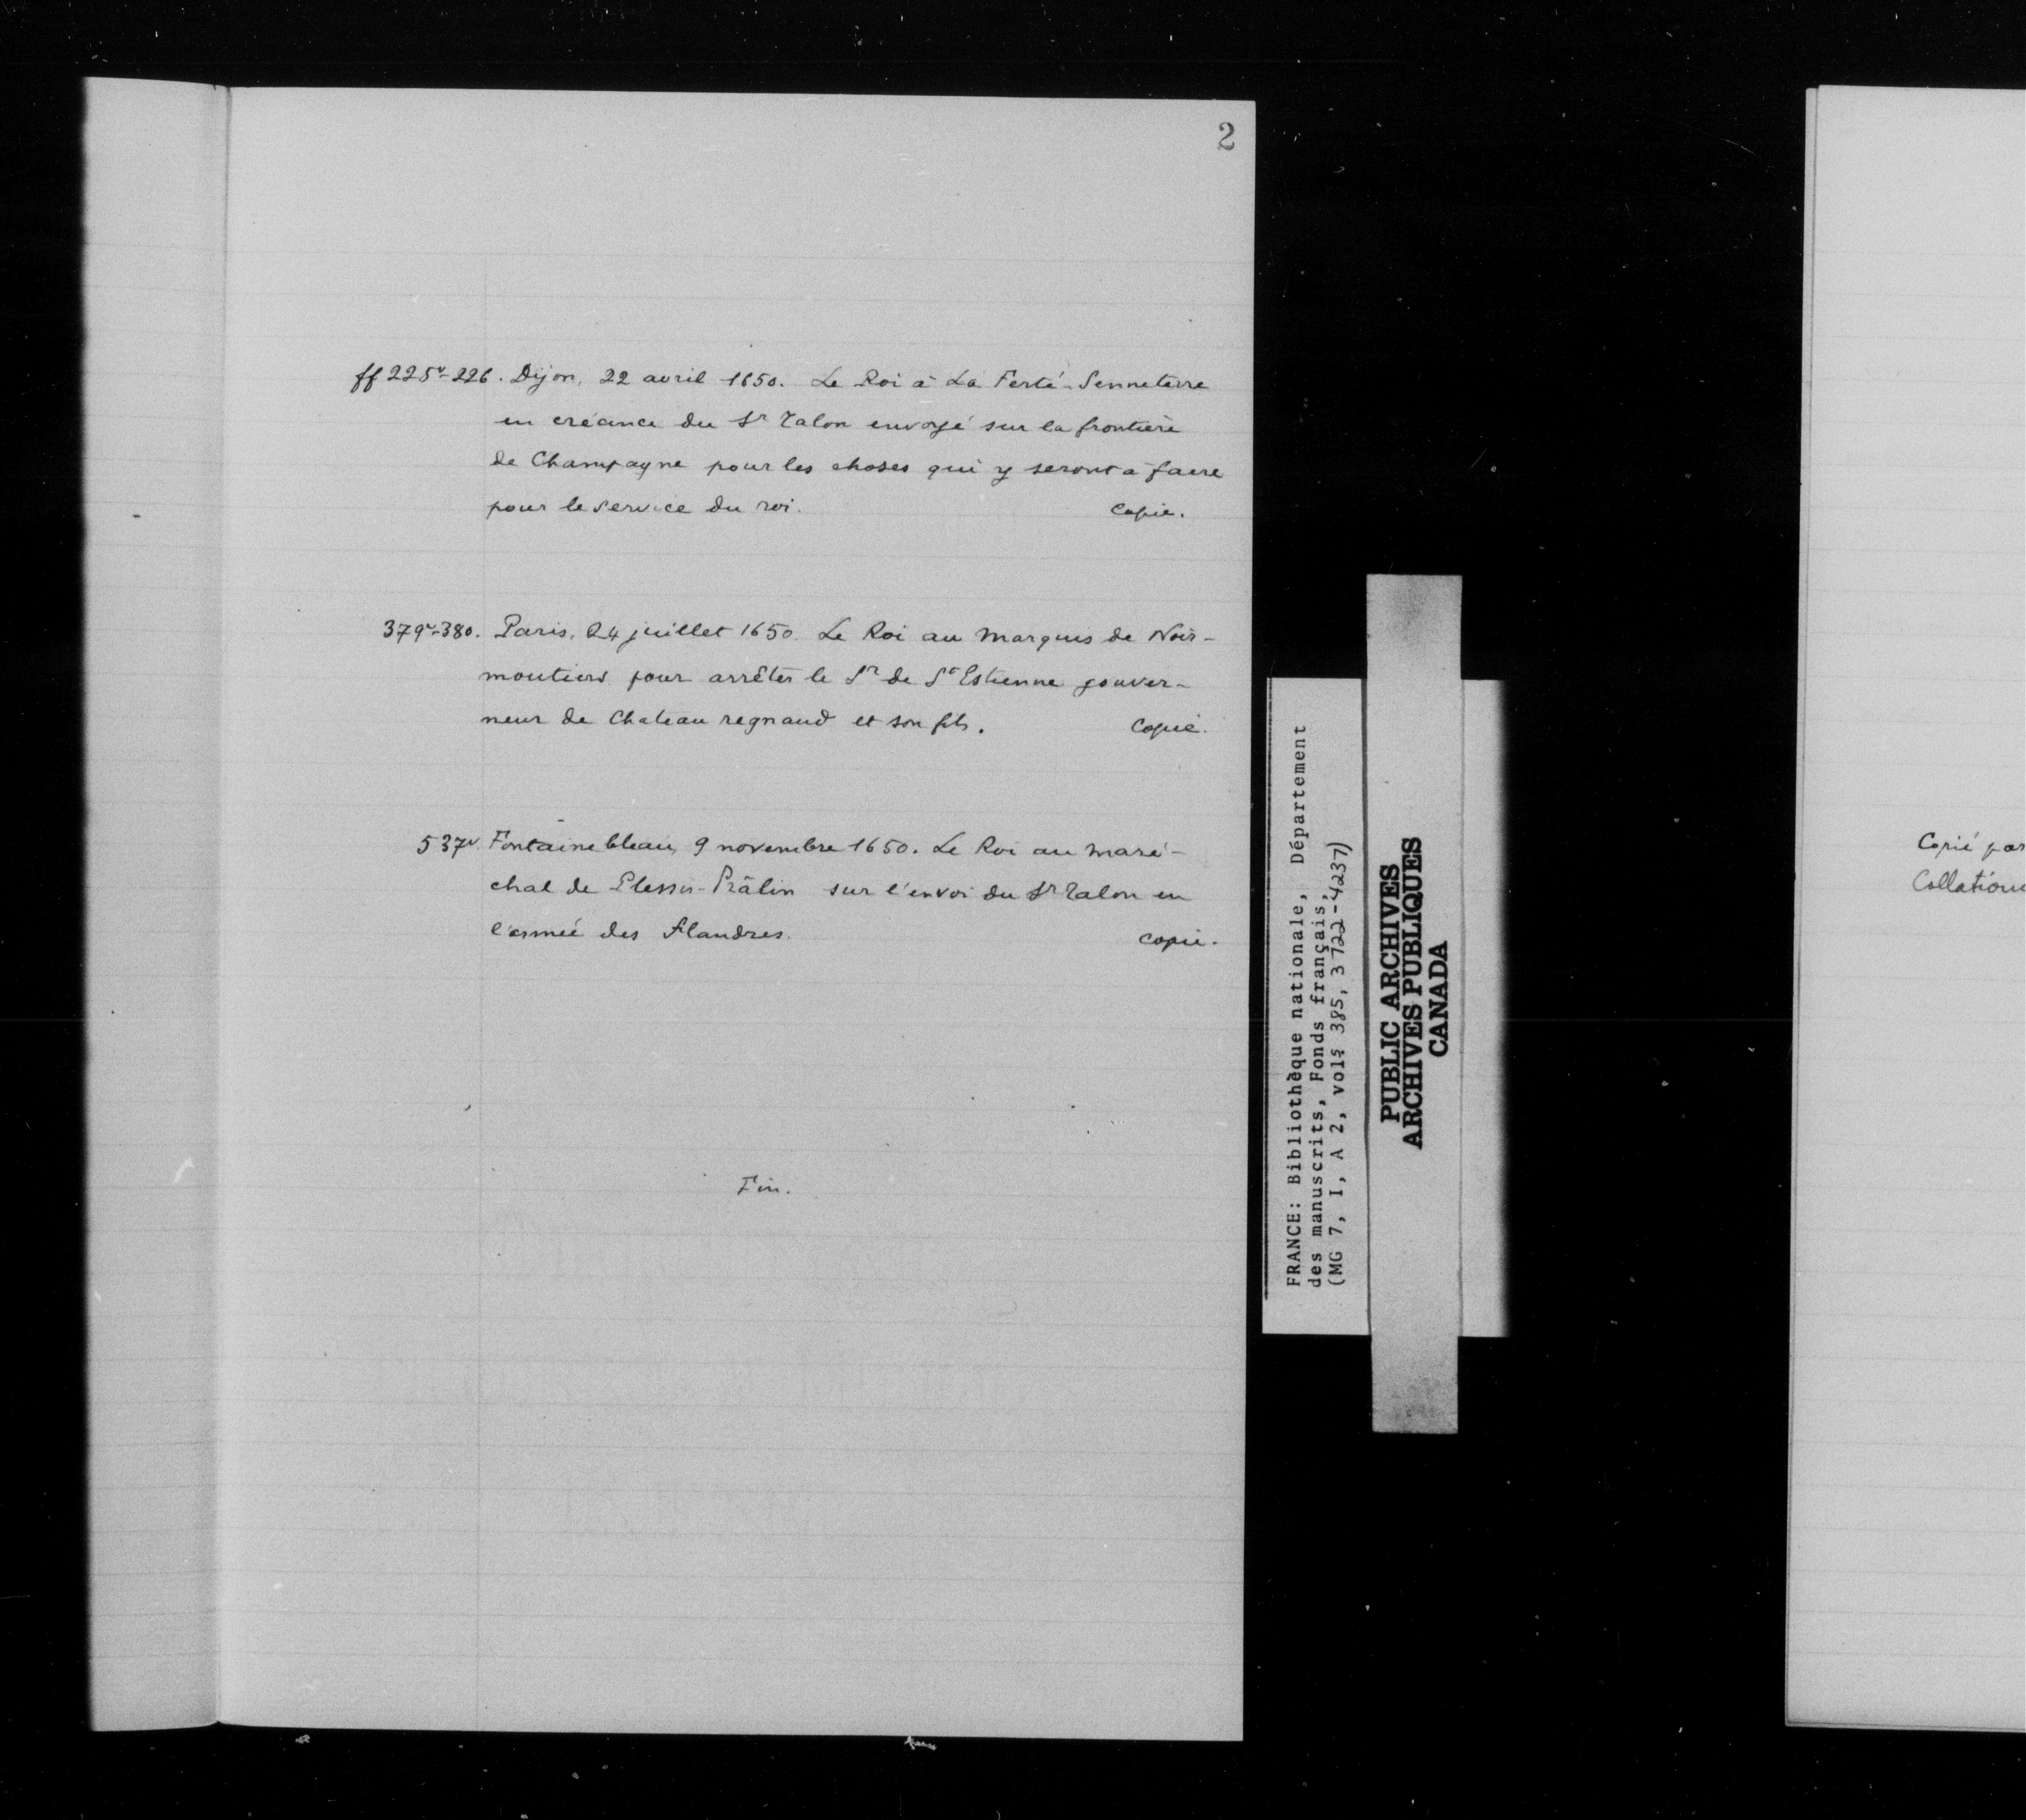 2
ff 225v-226. Dijon, 22 avril 1650. Le Roi à La Ferté-Senneterre
en créance du Sr Talon envoyé sur la frontière
de Champagne pour les choses qui y seront à faire
pour le service du roi. Copie.
379v-380. Paris, 24 juillet 1650. Le Roi au Marquis de Noir-
moutiers pour arrêter le Sr de St Estienne gouver-
neur de Chateau regnaud et son fils. Copie.
537v. Fontainebleau, 9 novembre 1650. Le Roi au maré-
chal de Plessis-Prâlin sur l'envoi du Sr Talon en
l'armée des Flandres. Copie.
Fin.
FRANCE: Bibliothèque nationale, Département
des manuscrits, Fonds français,
(MG 7, I, A 2, vols 385, 3722-4237)
PUBLIC ARCHIVES
ARCHIVES PUBLIQUES
CANADA
Copié par
Collation